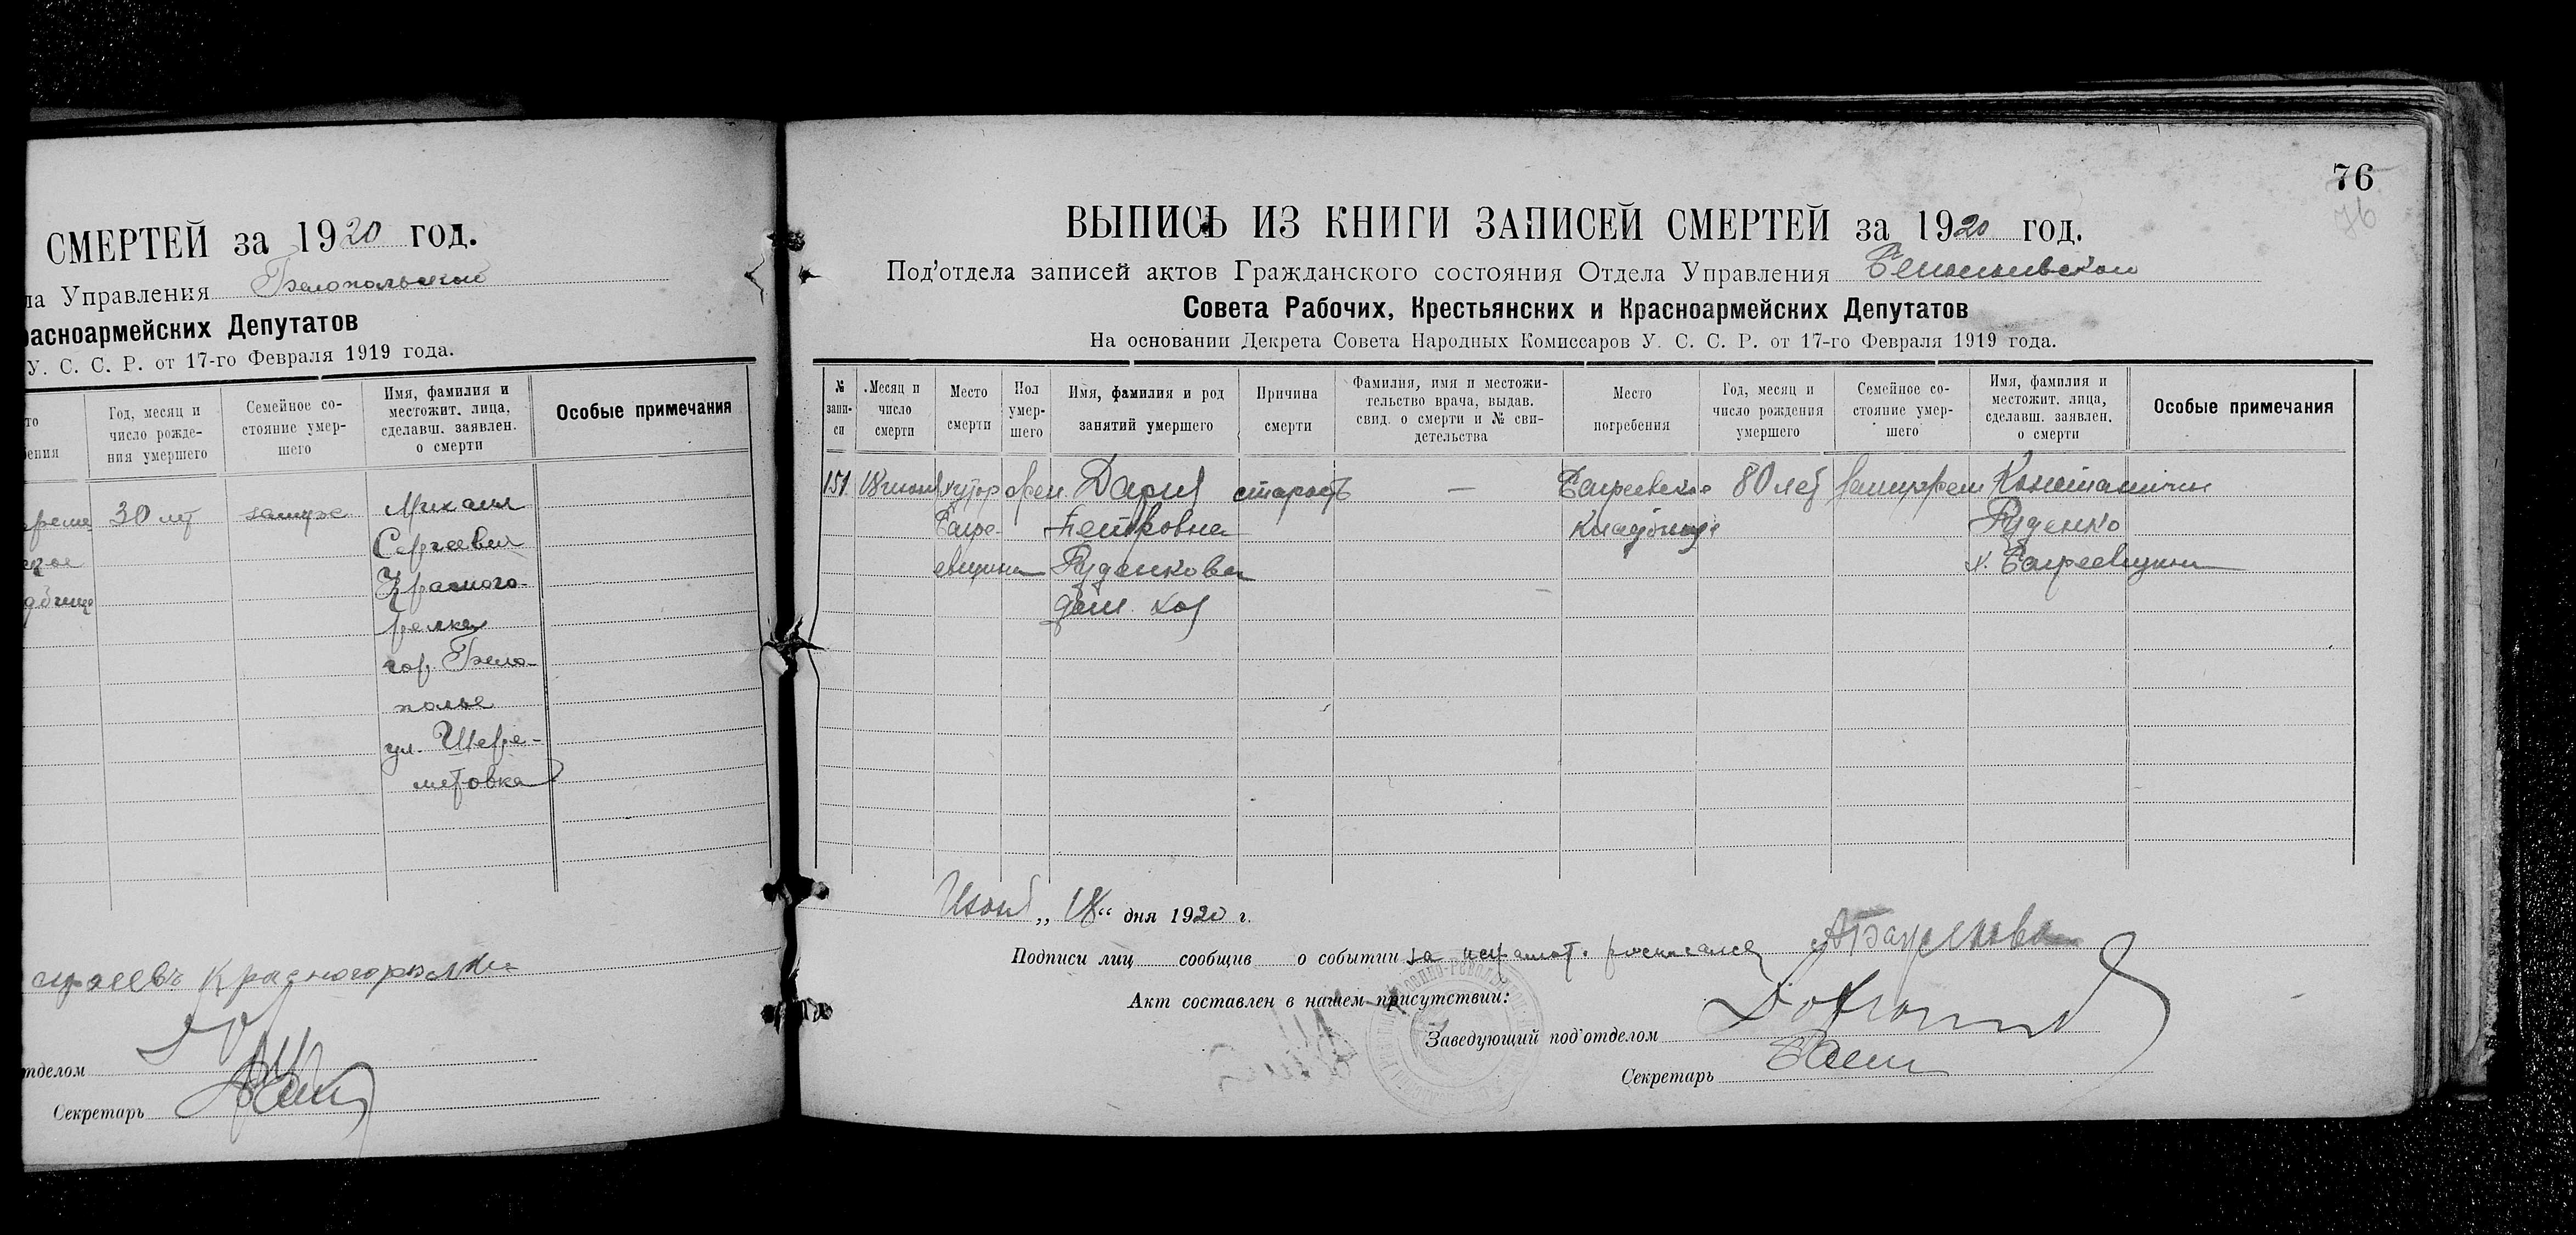 СМЕРТЕЙ за 1920 год.
ла Управления Белопольской
расноармейских Депутатов
У. С. С. Р. от 17-го Февраля 1919 года.
то
бения
Год, месяц и
число рожде-
ния умершего
Семейное со-
стояние умер-
шего
Имя, фамилия и
местожит. лица,
сделавш. заявлен.
о смерти
Особые примечания
30 лет
замуже
Михаил
Сергеевич
Красного-
релка
гор. Бело-
полье
ул. Шере-
метовка
Красногор
тделом
Секретарь
76
76
ВЫПИСЬ ИЗ КНИГИ ЗАПИСЕЙ СМЕРТЕЙ за 1920 год.
Под'отдела записей актов Гражданского состояния Отдела Управления
Совета Рабочих, Крестьянских и Красноармейских Депутатов
На основании Декрета Совета Народных Комиссаров У. С. С. Р. от 17-го Февраля 1919 года.
№
запи-
си
Месяц и
число
смерти
Место
смерти
Пол
умер-
шего
Имя, фамилия и род
занятий умершего
Причина
смерти
Фамилия, имя и местожи-
тельство врача, выдав.
свид. о смерти и № сви-
детельства
Место
погребения
Год, месяц и
число рождения
умершего
Семейное со-
стояние умер-
шего
Имя, фамилия и
местожит. лица,
сделавш. заявлен.
о смерти
Особые примечания
151 18 июня хутор жен. Дария старость — 80 лет Константин
Петровна кладбище Руденко
Руденкова
дом. хоз
Июня „18“ дня 1920 г.
Подписи лиц сообщив о событии за неграмот.
Акт составлен в нашем присутствии:
Заведующий под'отделом
Секретарь